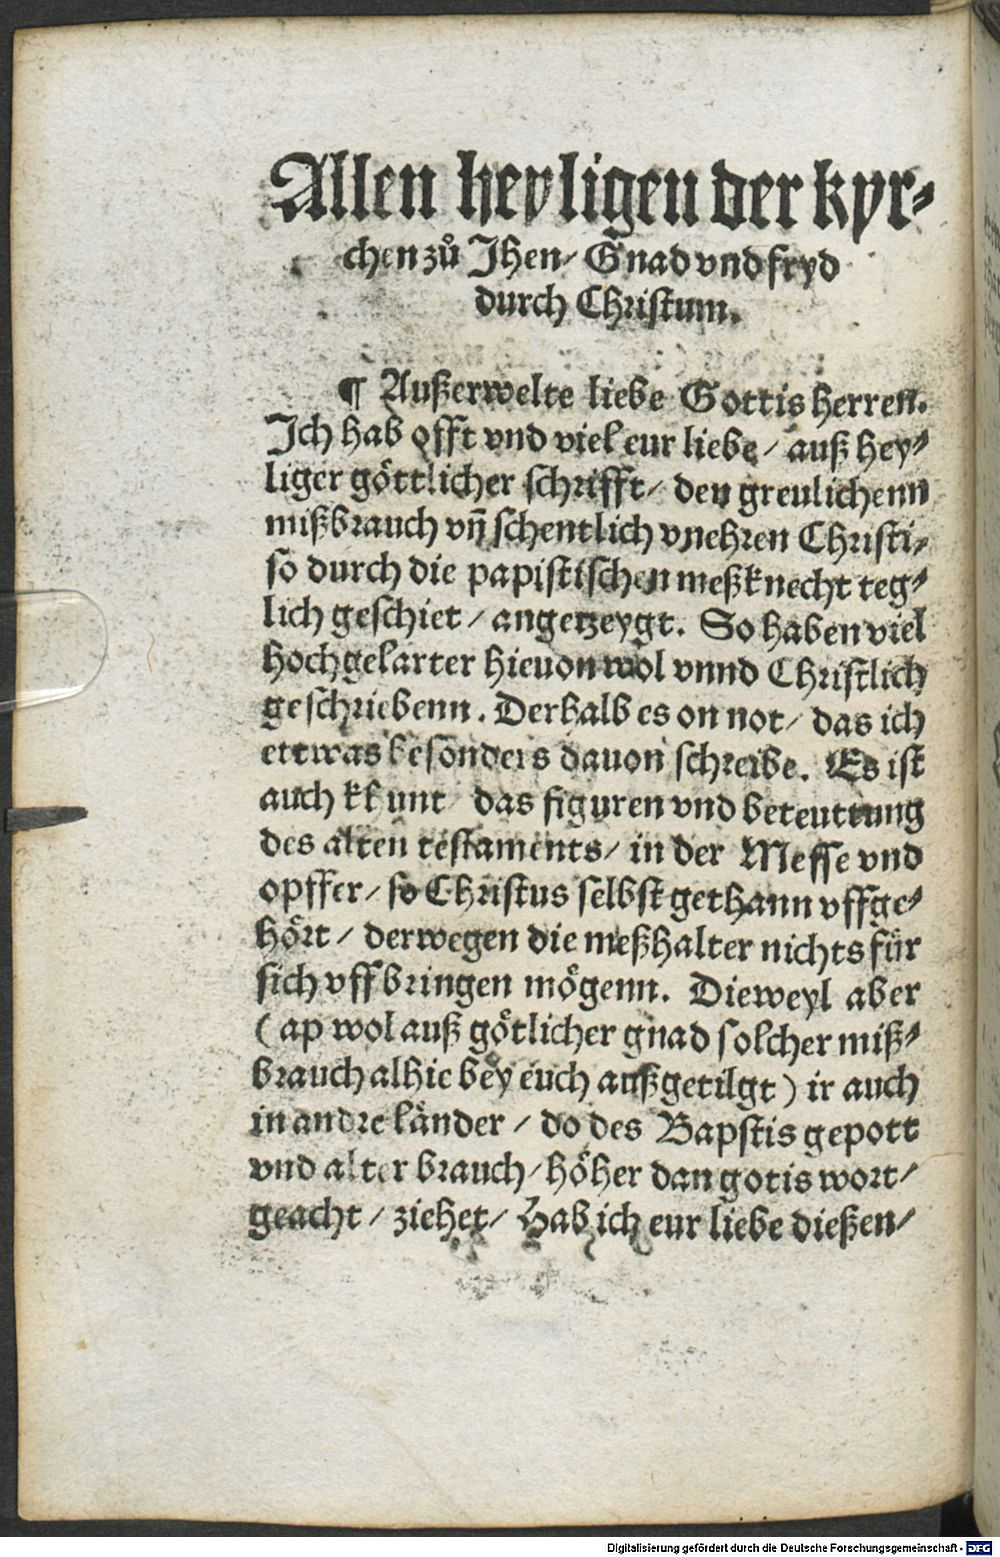 Allen heyligen der kyr⸗
chen zů Jhen/ Gnad vnd fryd
durch Christum.
¶ Außerwelte liebe Gottis herren.
Jch hab offt vnd viel eur liebe/ auß hey⸗
liger göttlicher schrifft/ den greulichenn
mißbrauch vn̄ schentlich vnehren Christi/
so durch die papistischen meßknecht teg⸗
lich geschiet/ angetzeygt. So haben viel
hochgelarter hieuon wol vnnd Christlich
geschriebenn. Derhalb es on not/ das ich
ettwas besonders dauon schreibe. Es ist
auch kunt das figuren vnd beteuttung
des alten testaments/ in der Messe vnd
opffer/ so Christus selbst gethann vffge⸗
hört/ derwegen die meßhalter nichts für
sich vffbringen mögenn. Dieweyl aber
(ap wol auß götlicher gnad solcher miß⸗
brauch alhie bey euch außgetilgt) ir auch
in andre länder/ do des Bapstis gepott
vnd alter brauch/ höher dan gotis wort/
geacht/ ziehet/ Hab ich eur liebe dießen/
Digitalisierung gefördert durch die Deutsche Forschungsgemeinschaft - DFG